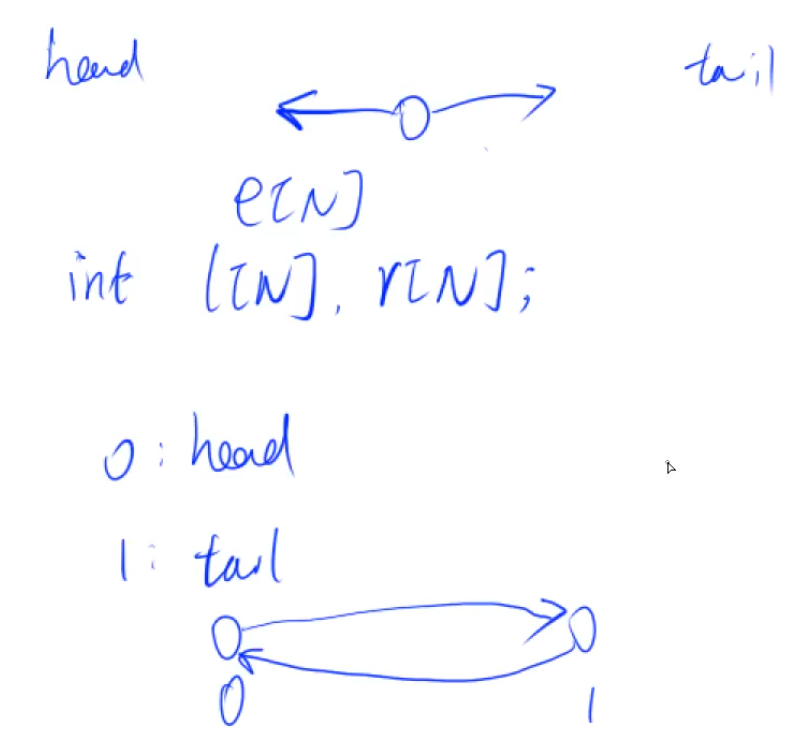 head tail
e[N]
int l[N], r[N];
0: head
1: tail
0 1